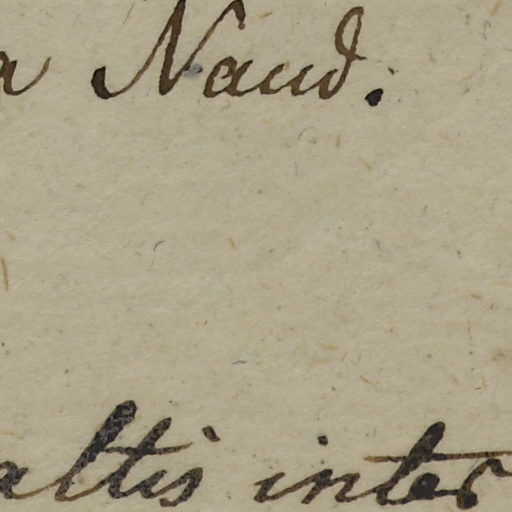 a Naud.
altis inter